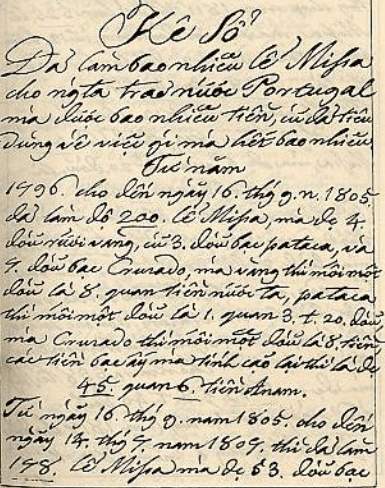 Kê Sổ
Đã làm bao nhiêu lễ Missa
cho người ta trao nước Portugal
mà được bao nhiêu tiền, cũ đã tiêu
dùng về việc gì mà hết bao nhiêu
Từ năm
1796. cho đến ngày 16 thág 9. n. 1805.
đã làm đc̣ 200. lễ Missa, mà đc̣ 4.
đấu rưỡi vàng, cũ 3. đấu bạc pataca, và
7. đấu bạc Crusado, mà vàng thì mỗi một
đấu là 8. quan tiền nước ta, pataca
thì mỗi một đấu là 1. quan 3. t. 20. đấu,
mà Crusado thì mỗi một đấu là 8. tiền
các tiền bạc ấy mà tính cả lại thì là đc̣
45. quan 6. tiền Anam.
Từ ngày 16 thág 9. nam 1805. cho đến
ngày 14. thág 7. nam 1809. thì đã làm
198. lễ Missa mà đc̣ 53. đấu bạc